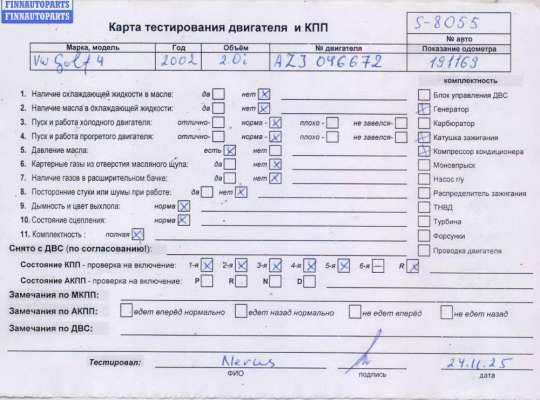 FINNAUTOPARTS
FINNAUTOPARTS
Карта тестирования двигателя и КПП
S-8055
№ авто
Марка, модель Год Объём № двигателя Показание одометра
VW Golf 4 2002 2.0i AZJ 046672 191169
комплектность
1. Наличие охлаждающей жидкости в масле: да нет
Блок управления ДВС
2. Наличие масла в охлаждающей жидкости: да нет
Генератор
3. Пуск и работа холодного двигателя: отлично- норма - плохо - не завелся-
Карбюратор
4. Пуск и работа прогретого двигателя: отлично- норма - плохо - не завелся-
Катушка зажигания
5. Давление масла: есть нет
Компрессор кондиционера
6. Картерные газы из отверстия масляного щупа: да нет
Моновпрыск
7. Наличие газов в расширительном бачке: да нет
Насос г/у
8. Посторонние стуки или шумы при работе: да нет
Распределитель зажигания
9. Дымность и цвет выхлопа: норма
ТНВД
10. Состояние сцепления: норма
Турбина
11. Комплектность : полная
Форсунки
Снято с ДВС (по согласованию!):
Проводка двигателя
Состояние КПП - проверка на включение: 1-я 2-я 3-я 4-я 5-я 6-я R
Состояние АКПП - проверка на включение: P R N D
Замечания по МКПП:
Замечания по АКПП: едет вперёд нормально едет назад нормально не едет вперёд не едет назад
Замечания по ДВС:
Тестировал:
ФИО подпись дата
24.11.25